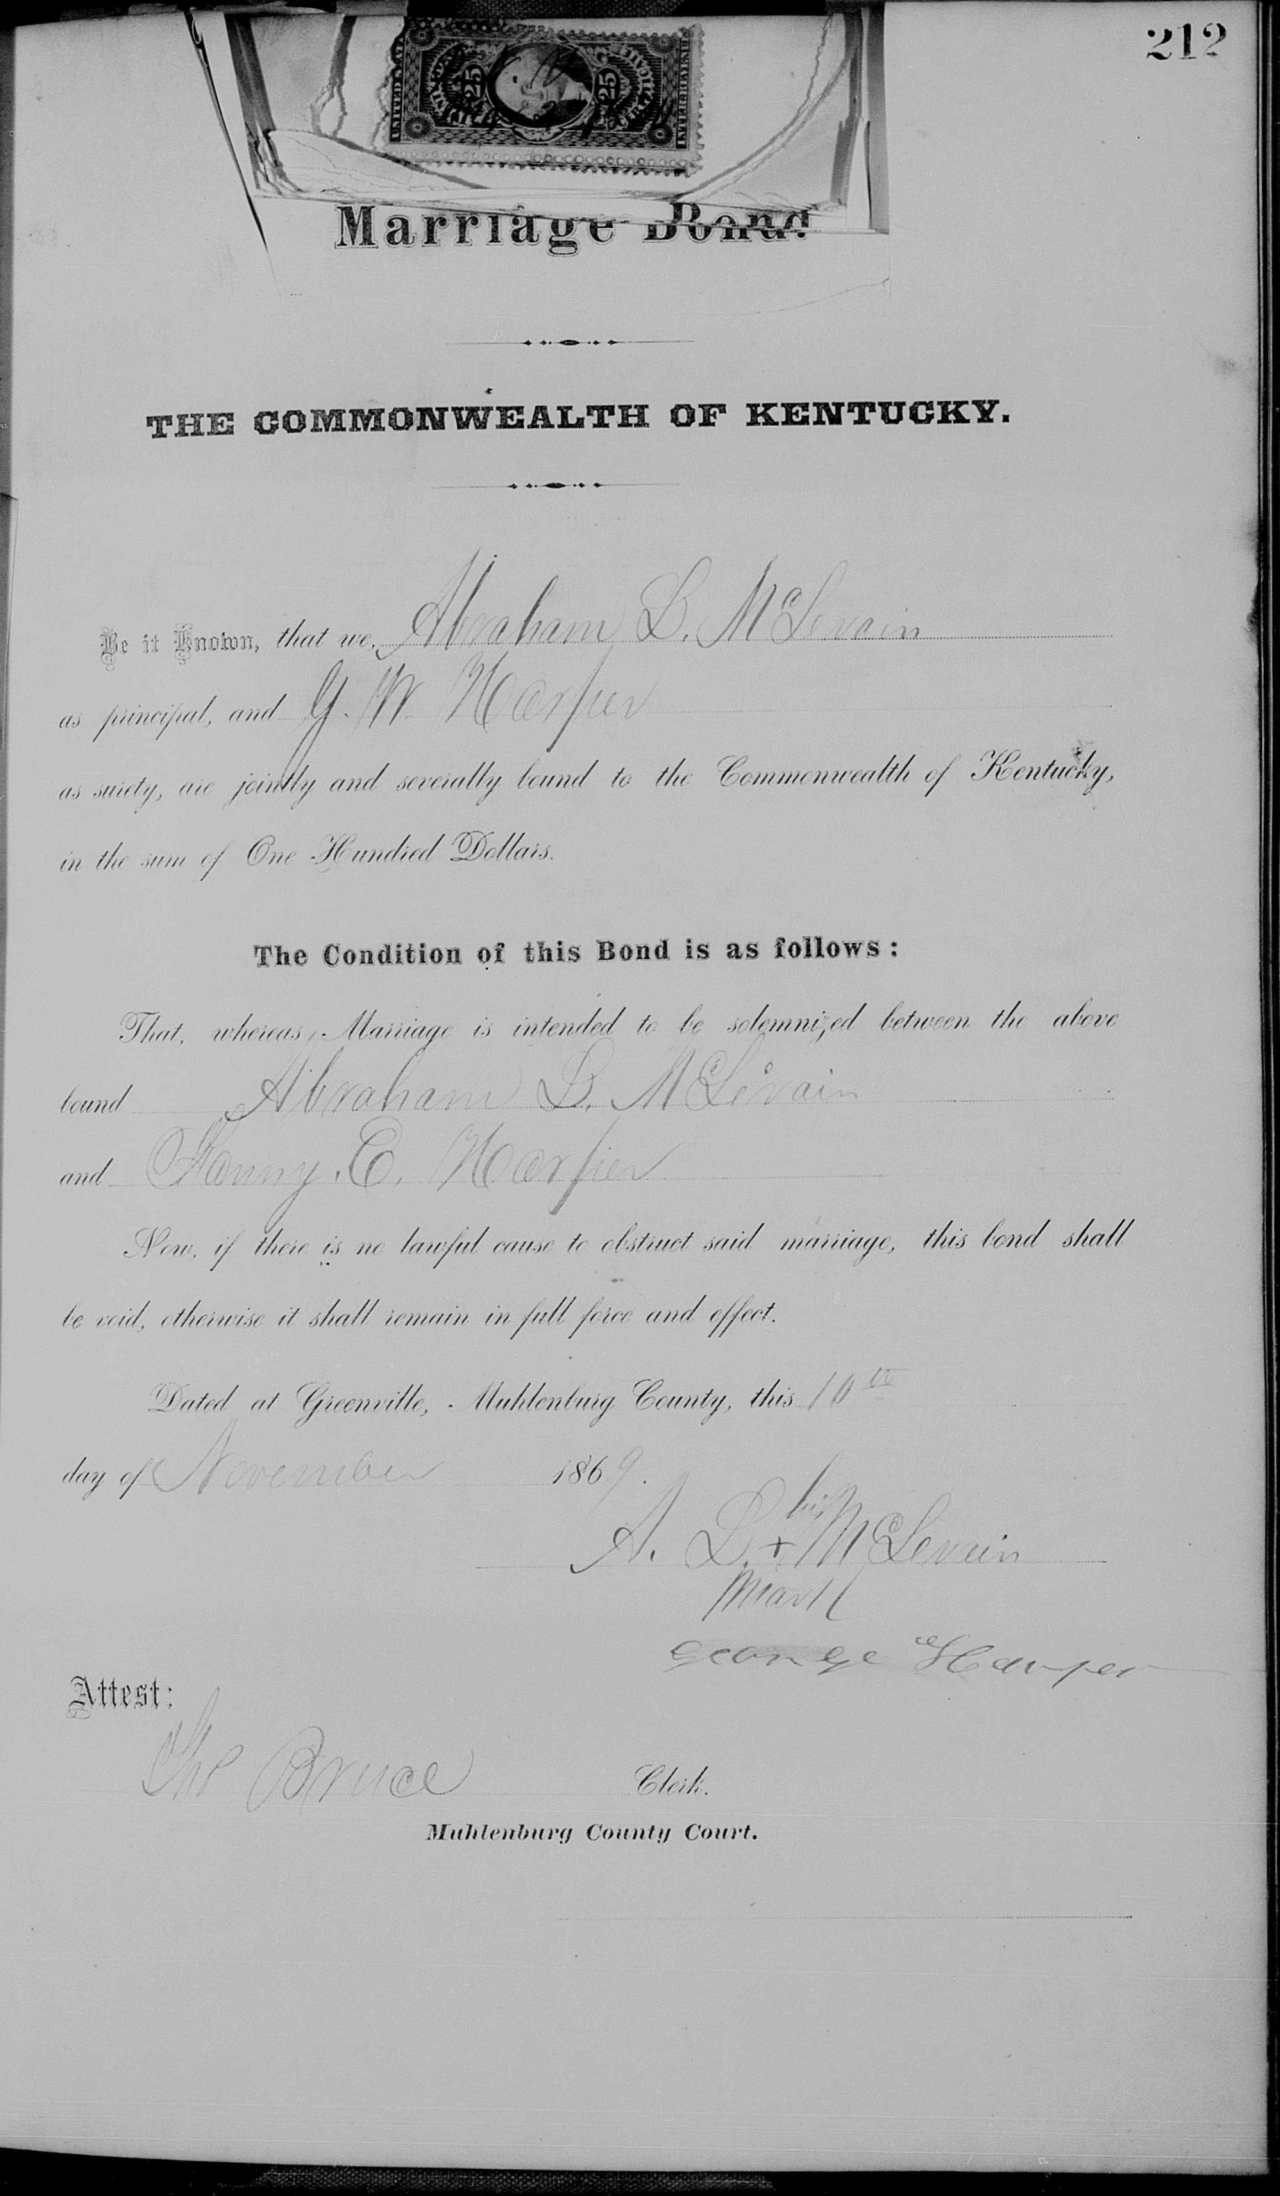 212
UNITED STATES
INTER. REVENUE
25
25
Marriage Bond.
THE COMMONWEALTH OF KENTUCKY.
Be it Known, that we, Abraham L. McLevain
as principal, and G. W. Harper
as surety, are jointly and severally bound to the Commonwealth of Kentucky,
in the sum of One Hundred Dollars.
The Condition of this Bond is as follows:
That, whereas, Marriage is intended to be solemnized between the above
bound Abraham L. McLevain
and Fanny. E. Harper
Now, if there is no lawful cause to obstruct said marriage, this bond shall
be void, otherwise it shall remain in full force and effect.
Dated at Greenville, Muhlenburg County, this 10th
day of November 1869.
his
A. L. + McLevain
Mark
George W Harper
Attest:
Tho Bruce Clerk.
Muhlenburg County Court.